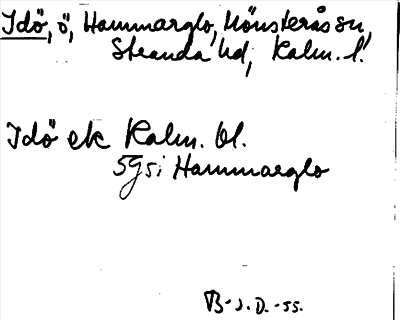 Idö, ö, Hammarglo, Mönsterås sn,
Stranda hd, Kalm. l.
Idö ek Kalm. bl.
5g si Hammarglo
B-J.D.-55.